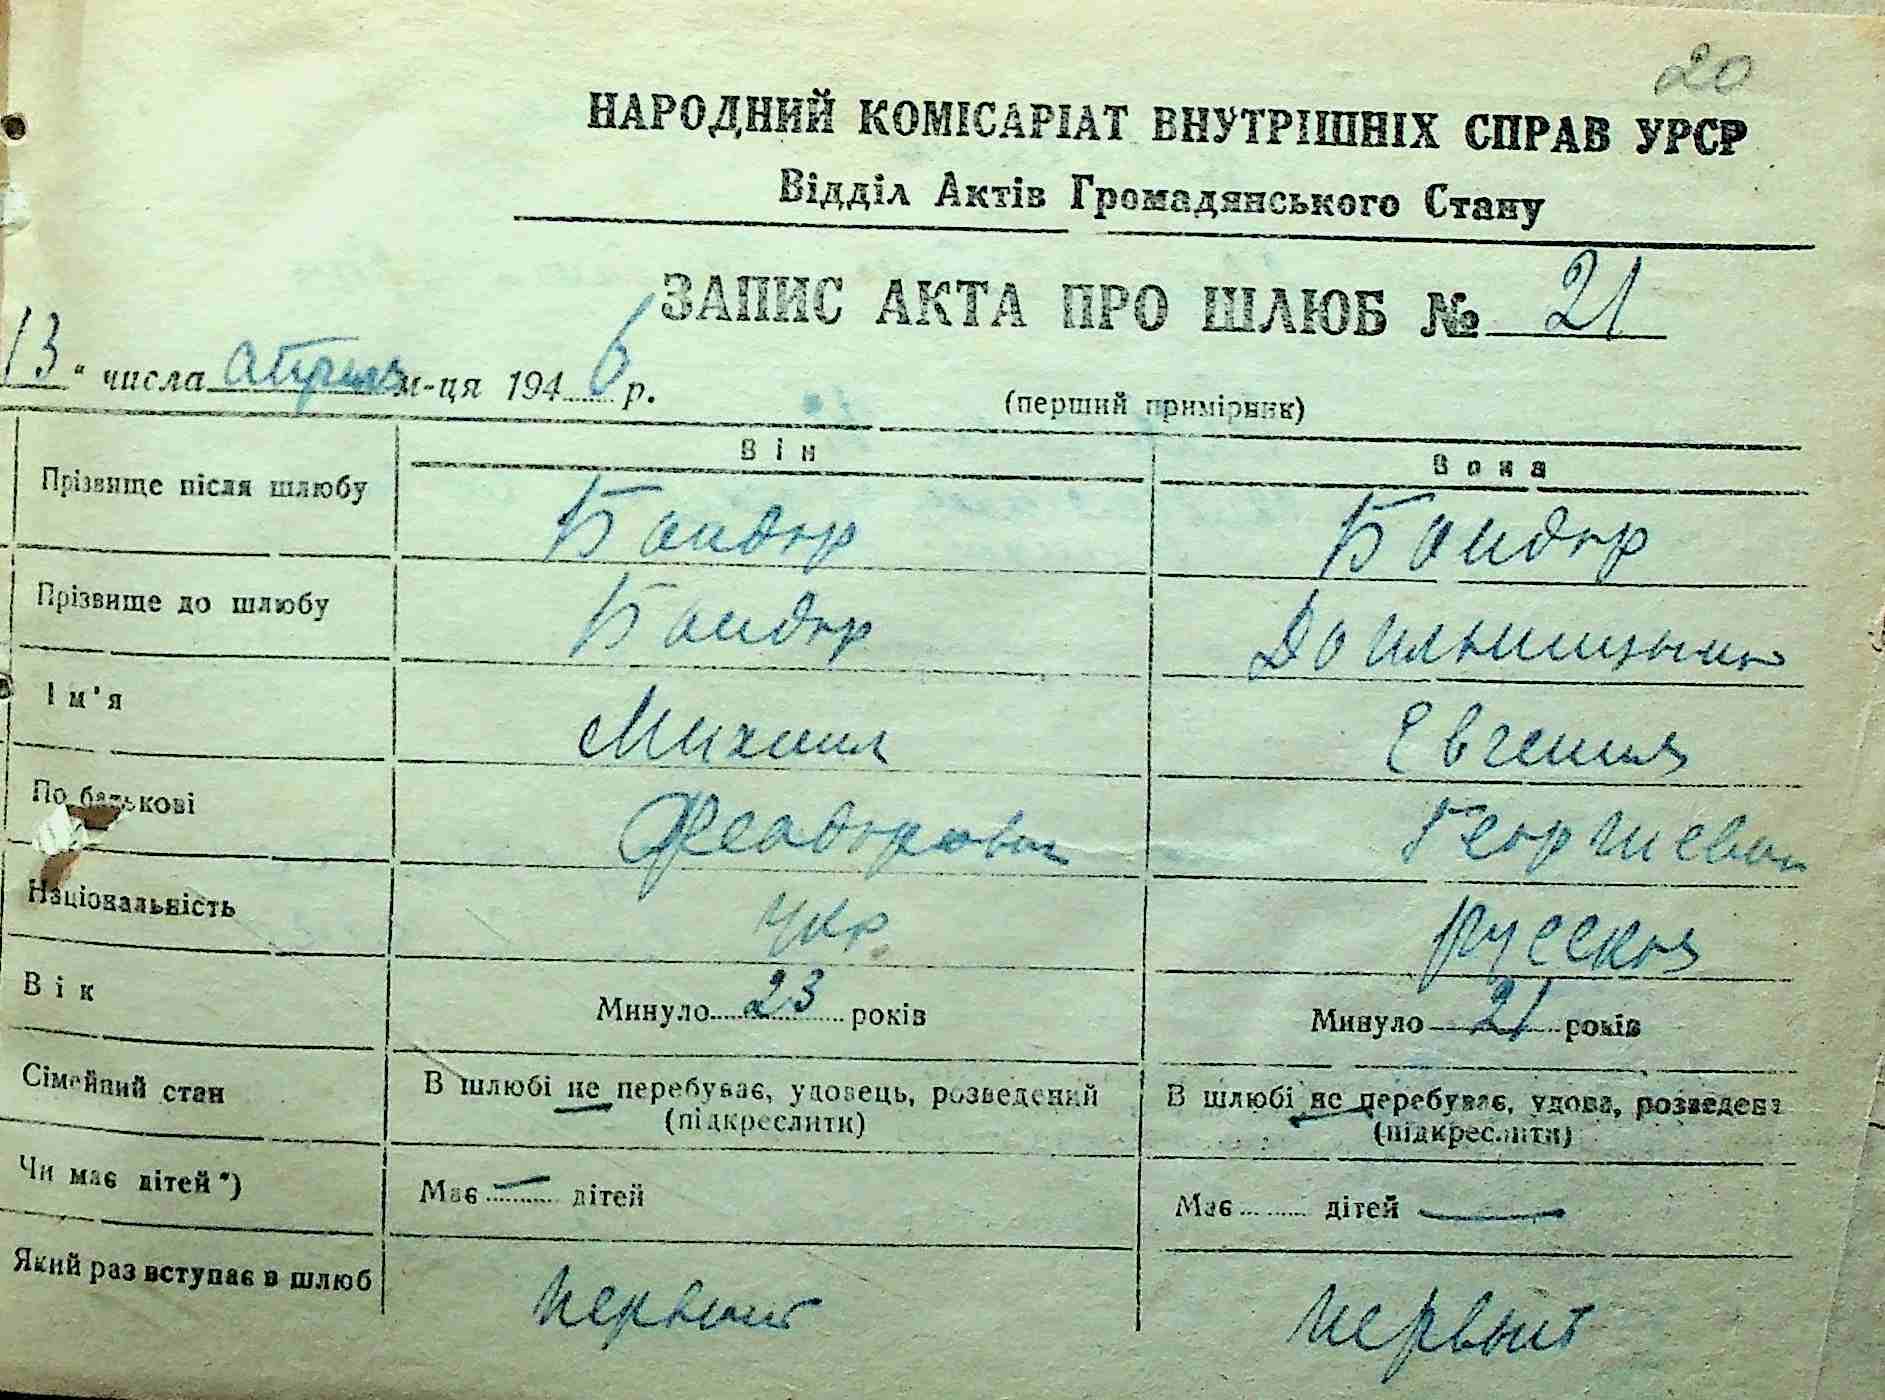 20
НАРОДНИЙ КОМІСАРІАТ ВНУТРІШНІХ СПРАВ УРСР
Відділ Актів Громадянського Стану
ЗАПИС АКТА ПРО ШЛЮБ № 21
13 " числа апреля м-ця 1946 р.
(перший примірник)
Він Вона
Прізвище після шлюбу Бондар Бондар
Прізвище до шлюбу Бондар
Ім'я Михаил Евгения
По батькові Феодорович Георгиевна
Національність укр. русская
Вік Минуло 23 років Минуло 21 років
Сімейний стан В шлюбі не перебуває, удовець, розведений В шлюбі не перебуває, удова, розведена
(підкреслити) (підкреслити)
Чи має дітей*) Має — дітей Має дітей —
Який раз вступає в шлюб первый первый